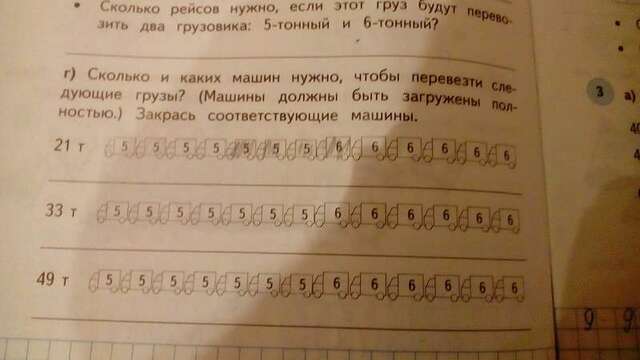 • Сколько рейсов нужно, если этот груз будут перево-
зить два грузовика: 5-тонный и 6-тонный?
г) Сколько и каких машин нужно, чтобы перевезти сле-
дующие грузы? (Машины должны быть загружены пол-
ностью.) Закрась соответствующие машины.
21 т 5 5 5 5 5 5 5 6 6 6 6 6 6
33 т 5 5 5 5 5 5 5 6 6 6 6 6 6
49 т 5 5 5 5 5 5 5 6 6 6 6 6 6
3 а)